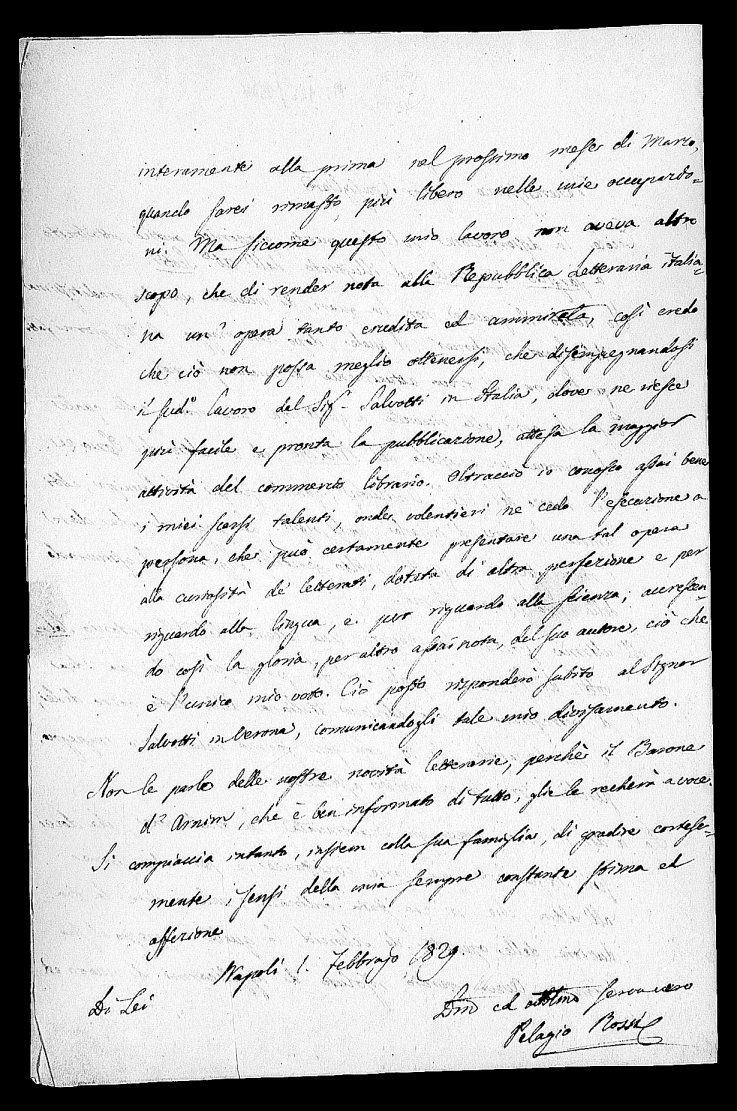 interamente alla prima nel prossimo mese di Marzo,
quando sarei rimasto più libero nelle mie occupazio=
ni. Ma siccome questo mio lavoro non aveva altro
scopo, che di render nota alla Repubblica Letteraria italia=
na un' opera tanto erudita ed ammirata, così credo
che ciò non possa meglio ottenersi, che disimpegnandosi
il sud.o lavoro dal Sig.r Salvotti in Italia, dove ne riesce
più facile e pronta la pubblicazione, attesa la maggior
attività del commercio librario. Oltracciò io conosco assai bene
i miei scarsi talenti, onde volentieri ne cedo l'esecuzione a
persona, che può certamente presentare una tal opera
alla curiosità de' letterati, dotata di altra perfezione e per
riguardo alla lingua, e per riguardo alla scienza; accrescen=
do così la gloria, per altro assai nota, del suo autore, ciò che
è l'unico mio voto. Ciò posto risponderò subito al Signor
Salvotti in Verona, comunicandogli tale mio divisamento.
Non le parlo delle nostre novità letterarie, perchè il Barone
d' Arnim, che è ben informato di tutto, glie le recherà a voce.
Si compiaccia intanto, insiem colla sua famiglia, di gradire cortese=
mente i sensi della mia sempre constante stima ed
affezione
Napoli 1. Febbrajo 1829.
Di Lei
ed servo vero
Pelagio Rossi